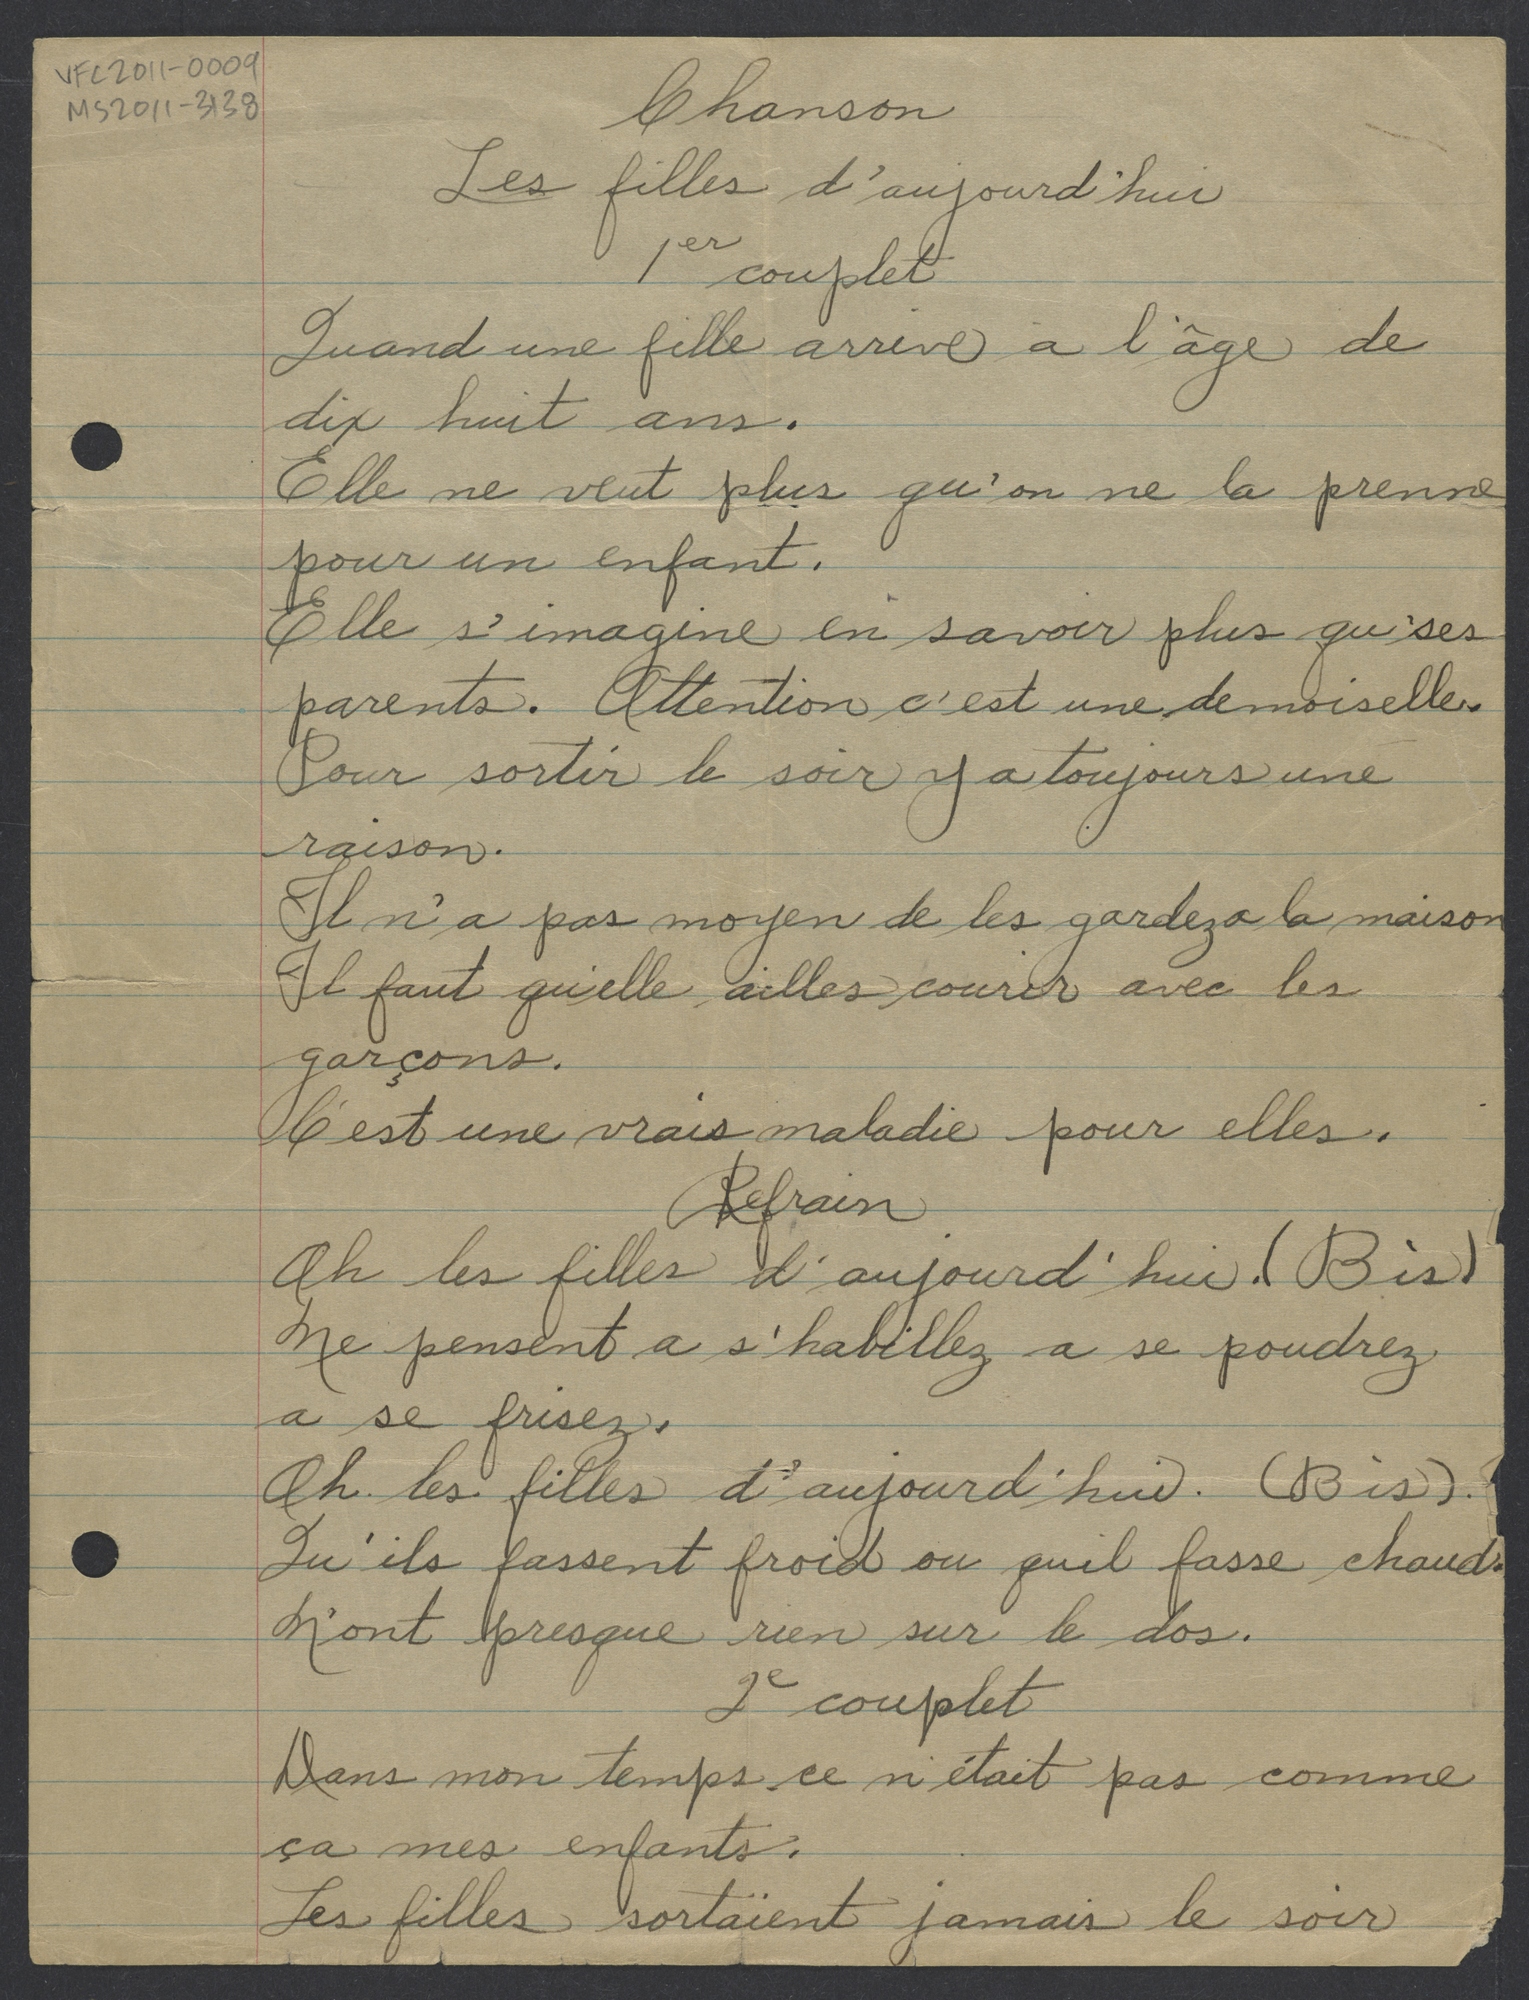 VFC2011-0009
MS2011-3138
Chanson
Les filles d'aujourd'hui
1er couplet
Quand une fille arrive a l'âge de
dix huit ans.
Elle ne veut plus qu'on ne la prenne
pour un enfant.
Elle s'imagine en savoir plus qu'ses
parents. Attention c'est une demoiselle.
Pour sortir le soir y a toujours une
raison.
Il n'a pas moyen de les gardez a la maison
Il faut qu'elle ailles courir avec les
garçons.
C'est une vrais maladie pour elles.
Refrain
Oh les filles d'aujourd'hui. (Bis)
Ne pensent a s'habillez a se poudrez
a se frisez.
Oh les filles d'aujourd'hui. (Bis).
Qu'ils fassent froid ou quil fasse chaud.
N'ont presque rien sur le dos.
2e couplet
Dans mon temps ce n'était pas comme
ça mes enfants.
Les filles sortaient jamais le soir